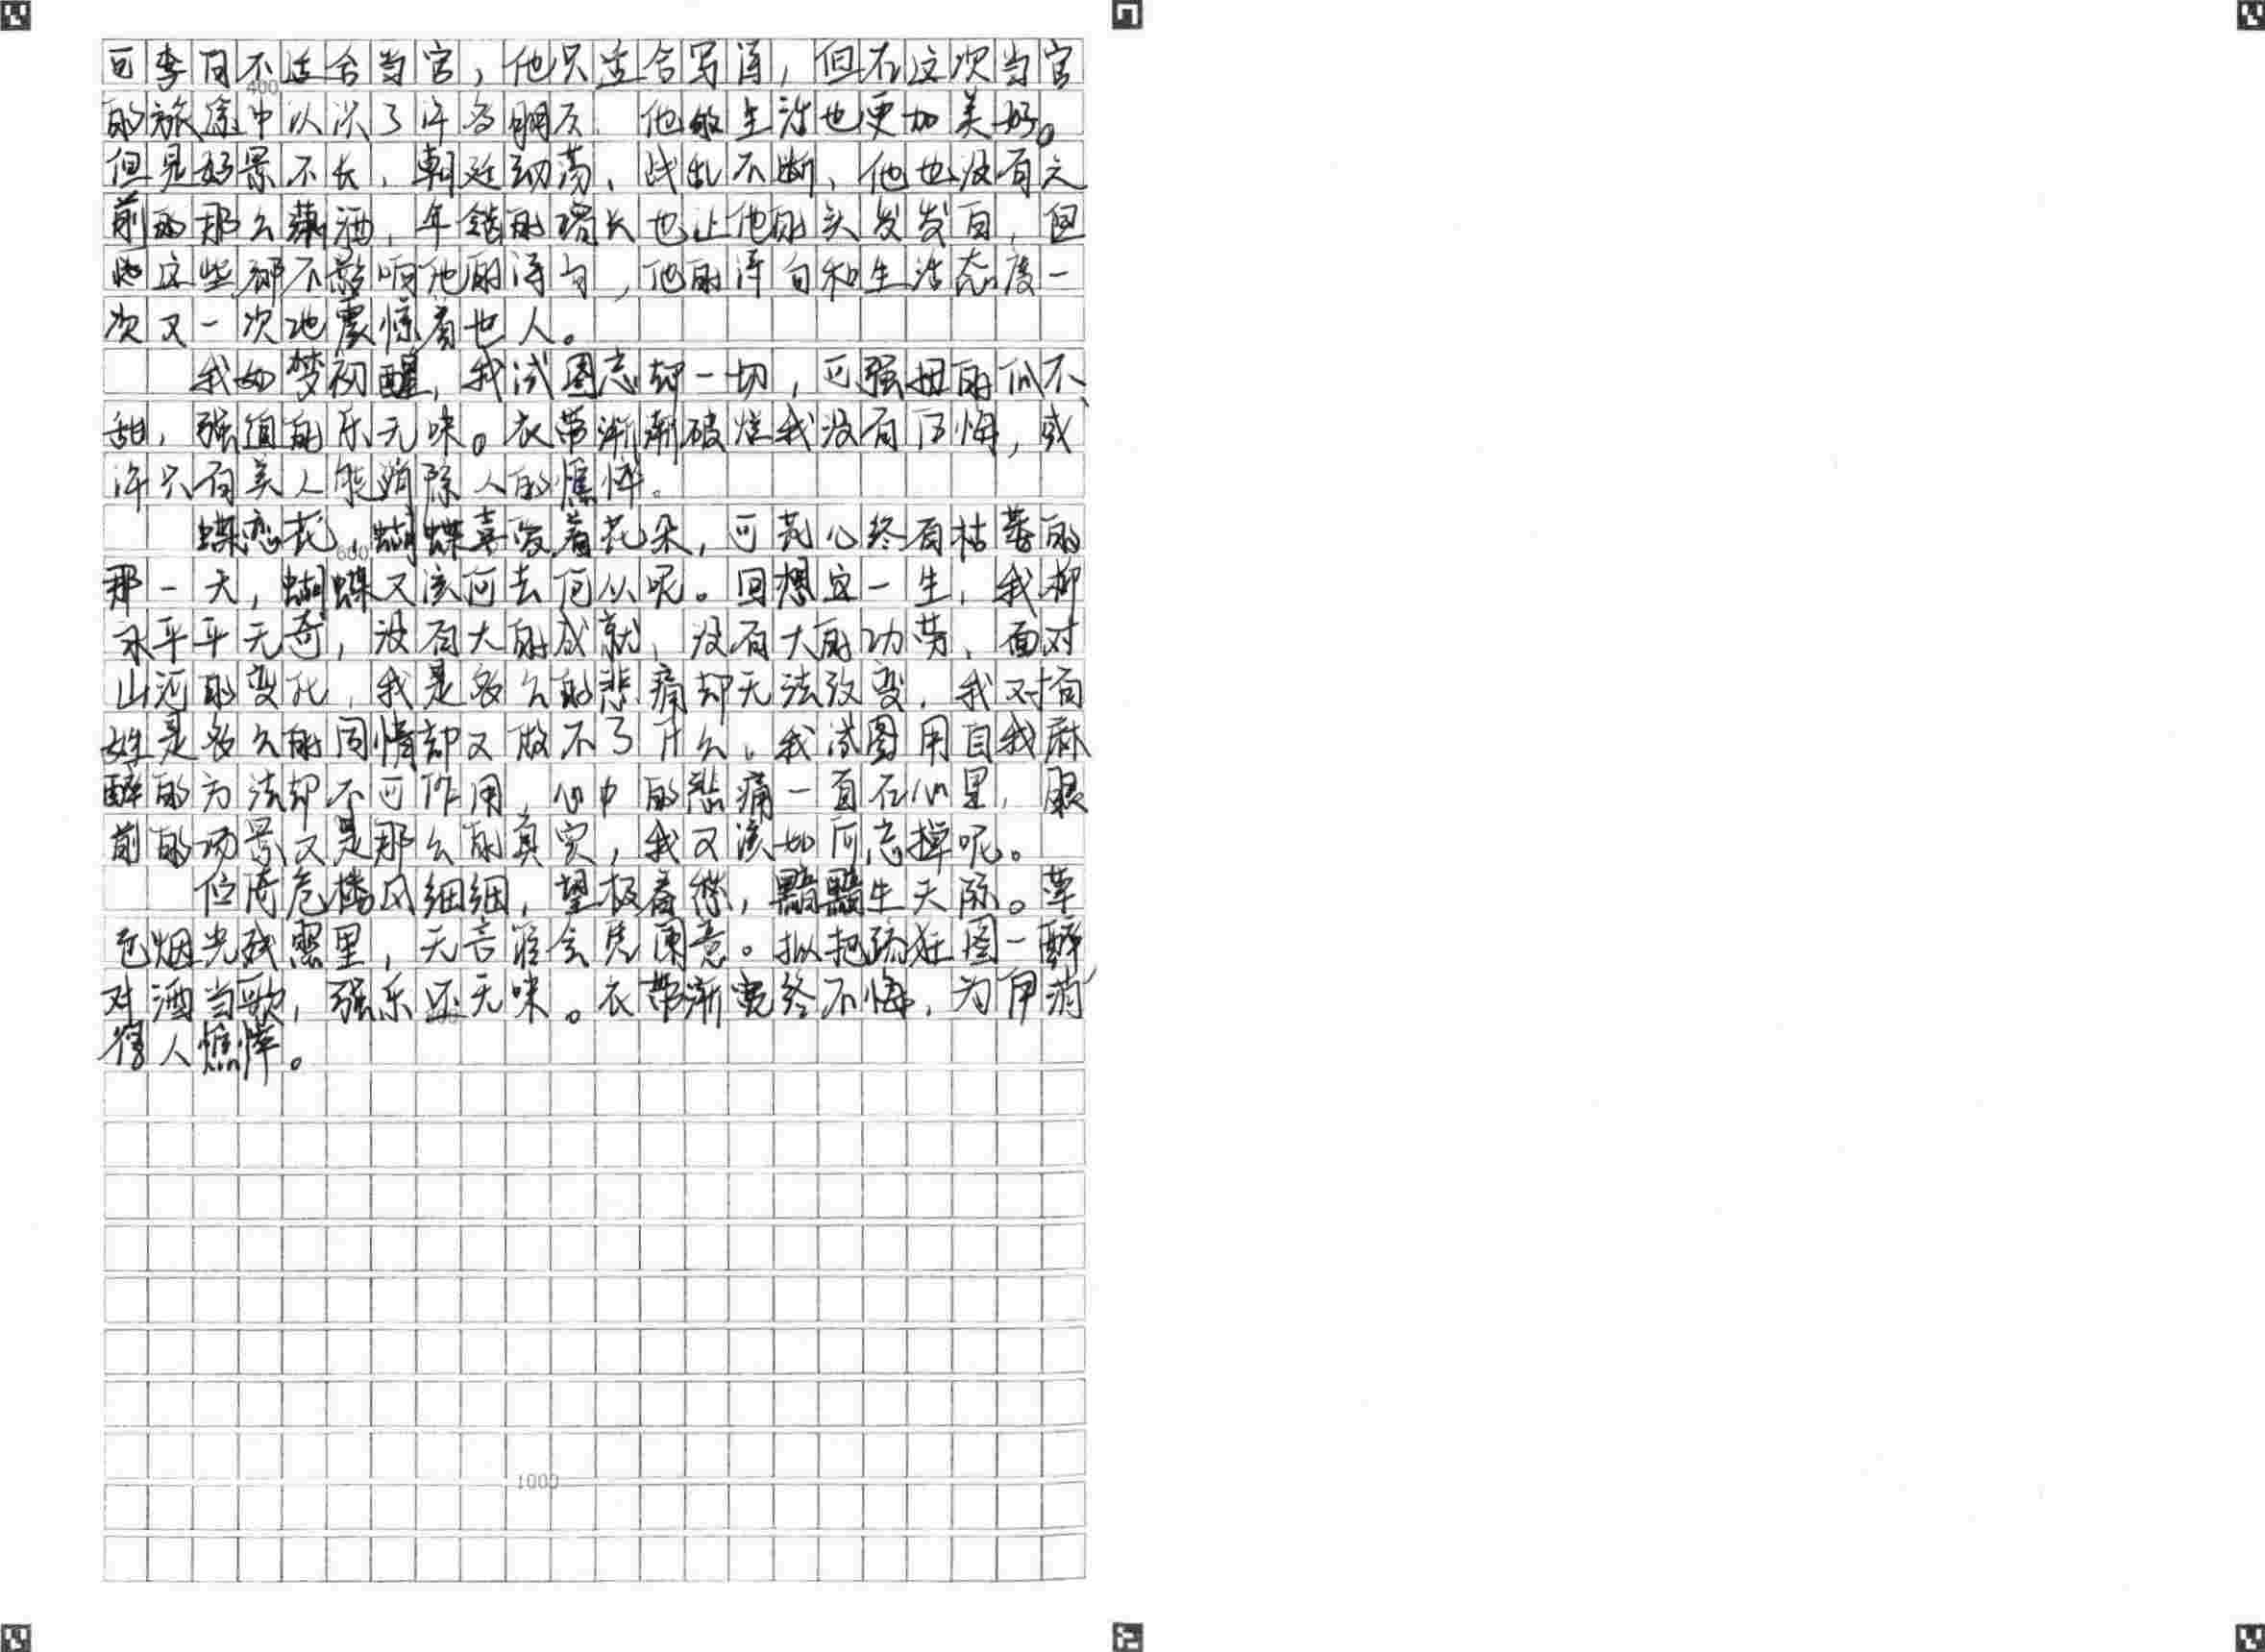 可李白不适合当官，他只适合写诗，但在这次当官
400
的旅途中认识了许多朋友，他的生活也更加美好。
但是好景不长，朝廷动荡、战乱不断，他也没有之
前的那么潇洒，年龄的增长也让他的头发发白，但
他这些都不影响他的诗句，他的诗句和生活态度一
次又一次地震惊着世人。
我如梦初醒，我试图忘却一切，可强扭的瓜不
甜，强值的乐无味。衣带渐渐破烂我没有后悔，或
许只有美人能消除人的憔悴。
蝶恋花，蝴蝶喜爱着花朵，可花心终有枯萎的
600
那一天，蝴蝶又该何去何从呢。回想这一生，我柳
永平平无奇，没有大的成就，没有大的功劳，面对
山河的变化，我是多么的悲痛却无法改变，我对百
姓是多么的同情却又做不了什么。我试图用自我麻
醉的方法却不可作用，心中的悲痛一直在心里，眼
前的场景又是那么的真实，我又该如何忘掉呢。
位倚危楼风细细，望极春愁，黯黯生天际。草
色烟光残照里，无言谁会凭阑意。拟把疏狂图一醉，
对酒当歌，强乐还无味。衣带渐宽终不悔，为伊消
得人憔悴。
1000